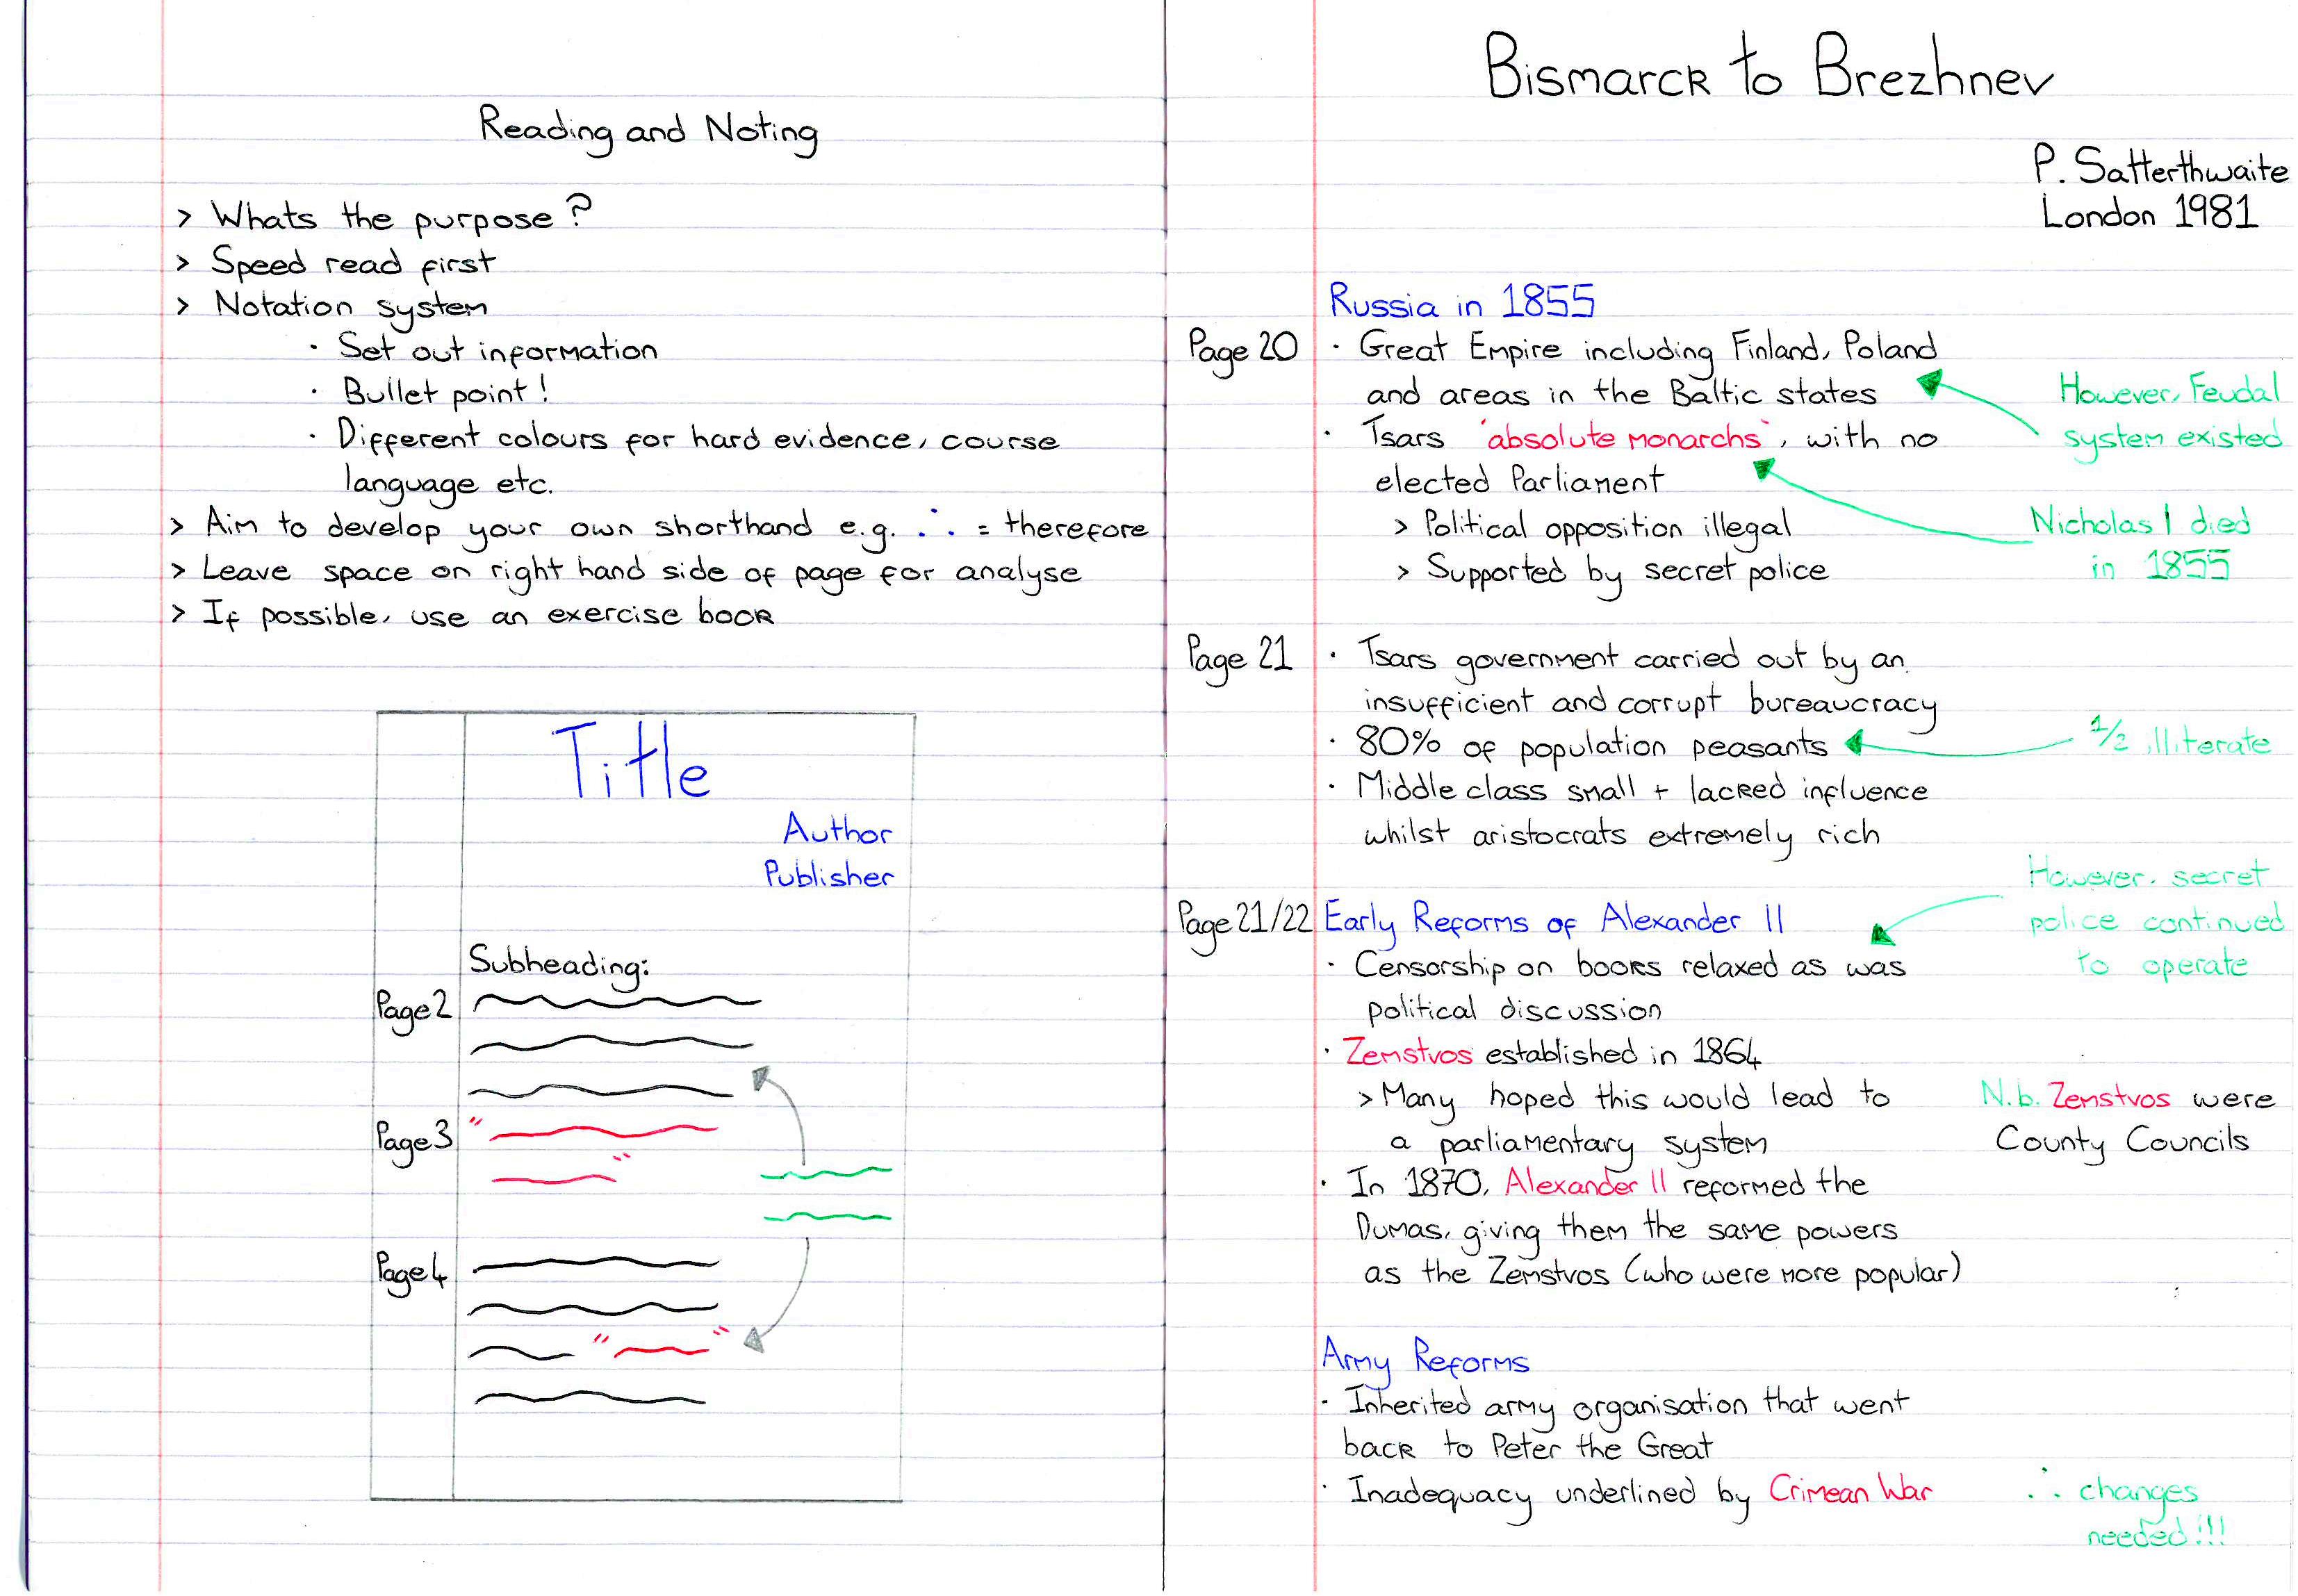 Reading and Noting
> Whats the purpose?
> Speed read first
> Notation system
· Set out information
· Bullet point!
· Different colours for hard evidence, course
language etc.
> Aim to develop your own shorthand e.g. ∴ = therefore
> Leave space on right hand side of page for analyse
> If possible, use an exercise book
Title
Author
Publisher
Subheading:
Page 2
Page 3
" "
Page 4
" "
Bismarck to Brezhnev
P. Satterthwaite
London 1981
Russia in 1855
Page 20 · Great Empire including Finland, Poland
and areas in the Baltic states
However, Feudal
system existed
· Tsars 'absolute monarchs', with no
elected Parliament
> Political opposition illegal
> Supported by secret police
Nicholas I died
in 1855
Page 21 · Tsars government carried out by an
insufficient and corrupt bureaucracy
· 80% of population peasants
1/2 illiterate
· Middle class small + lacked influence
whilst aristocrats extremely rich
Page 21/22 Early Reforms of Alexander II
· Censorship on books relaxed as was
political discussion
However, secret
police continued
to operate
· Zemstvos established in 1864
> Many hoped this would lead to
a parliamentary system
N.b. Zemstvos were
County Councils
· In 1870, Alexander II reformed the
Dumas, giving them the same powers
as the Zemstvos (who were more popular)
Army Reforms
· Inherited army organisation that went
back to Peter the Great
· Inadequacy underlined by Crimean War
∴ changes
needed!!!